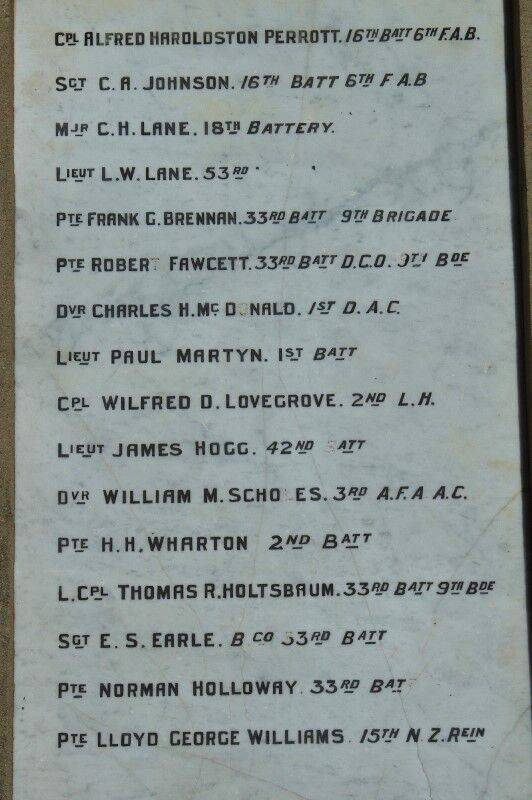 CPL ALFRED HAROLDSTON PERROTT. 16TH BATT 6TH F.A.B.
SGT C. A. JOHNSON. 16TH BATT 6TH F A.B
MJR C. H. LANE. 18TH BATTERY.
LIEUT L. W. LANE. 53RD
PTE FRANK G. BRENNAN. 33RD BATT 9TH BRIGADE
PTE ROBERT FAWCETT. 33RD BATT D.C.O. 9TH BDE
DVR CHARLES H. MCDONALD. 1ST D. A. C.
LIEUT PAUL MARTYN. 1ST BATT
CPL WILFRED D. LOVEGROVE. 2ND L.H.
LIEUT JAMES HOGG. 42ND BATT
DVR WILLIAM M. SCHOLES. 3RD A.F.A A.C.
PTE H. H. WHARTON 2ND BATT
L. CPL THOMAS R. HOLTSBAUM. 33RD BATT 9TH BDE
SGT E. S. EARLE. B CO 33RD BATT
PTE NORMAN HOLLOWAY. 33RD BATT
PTE LLOYD GEORGE WILLIAMS. 15TH N.Z. REIN